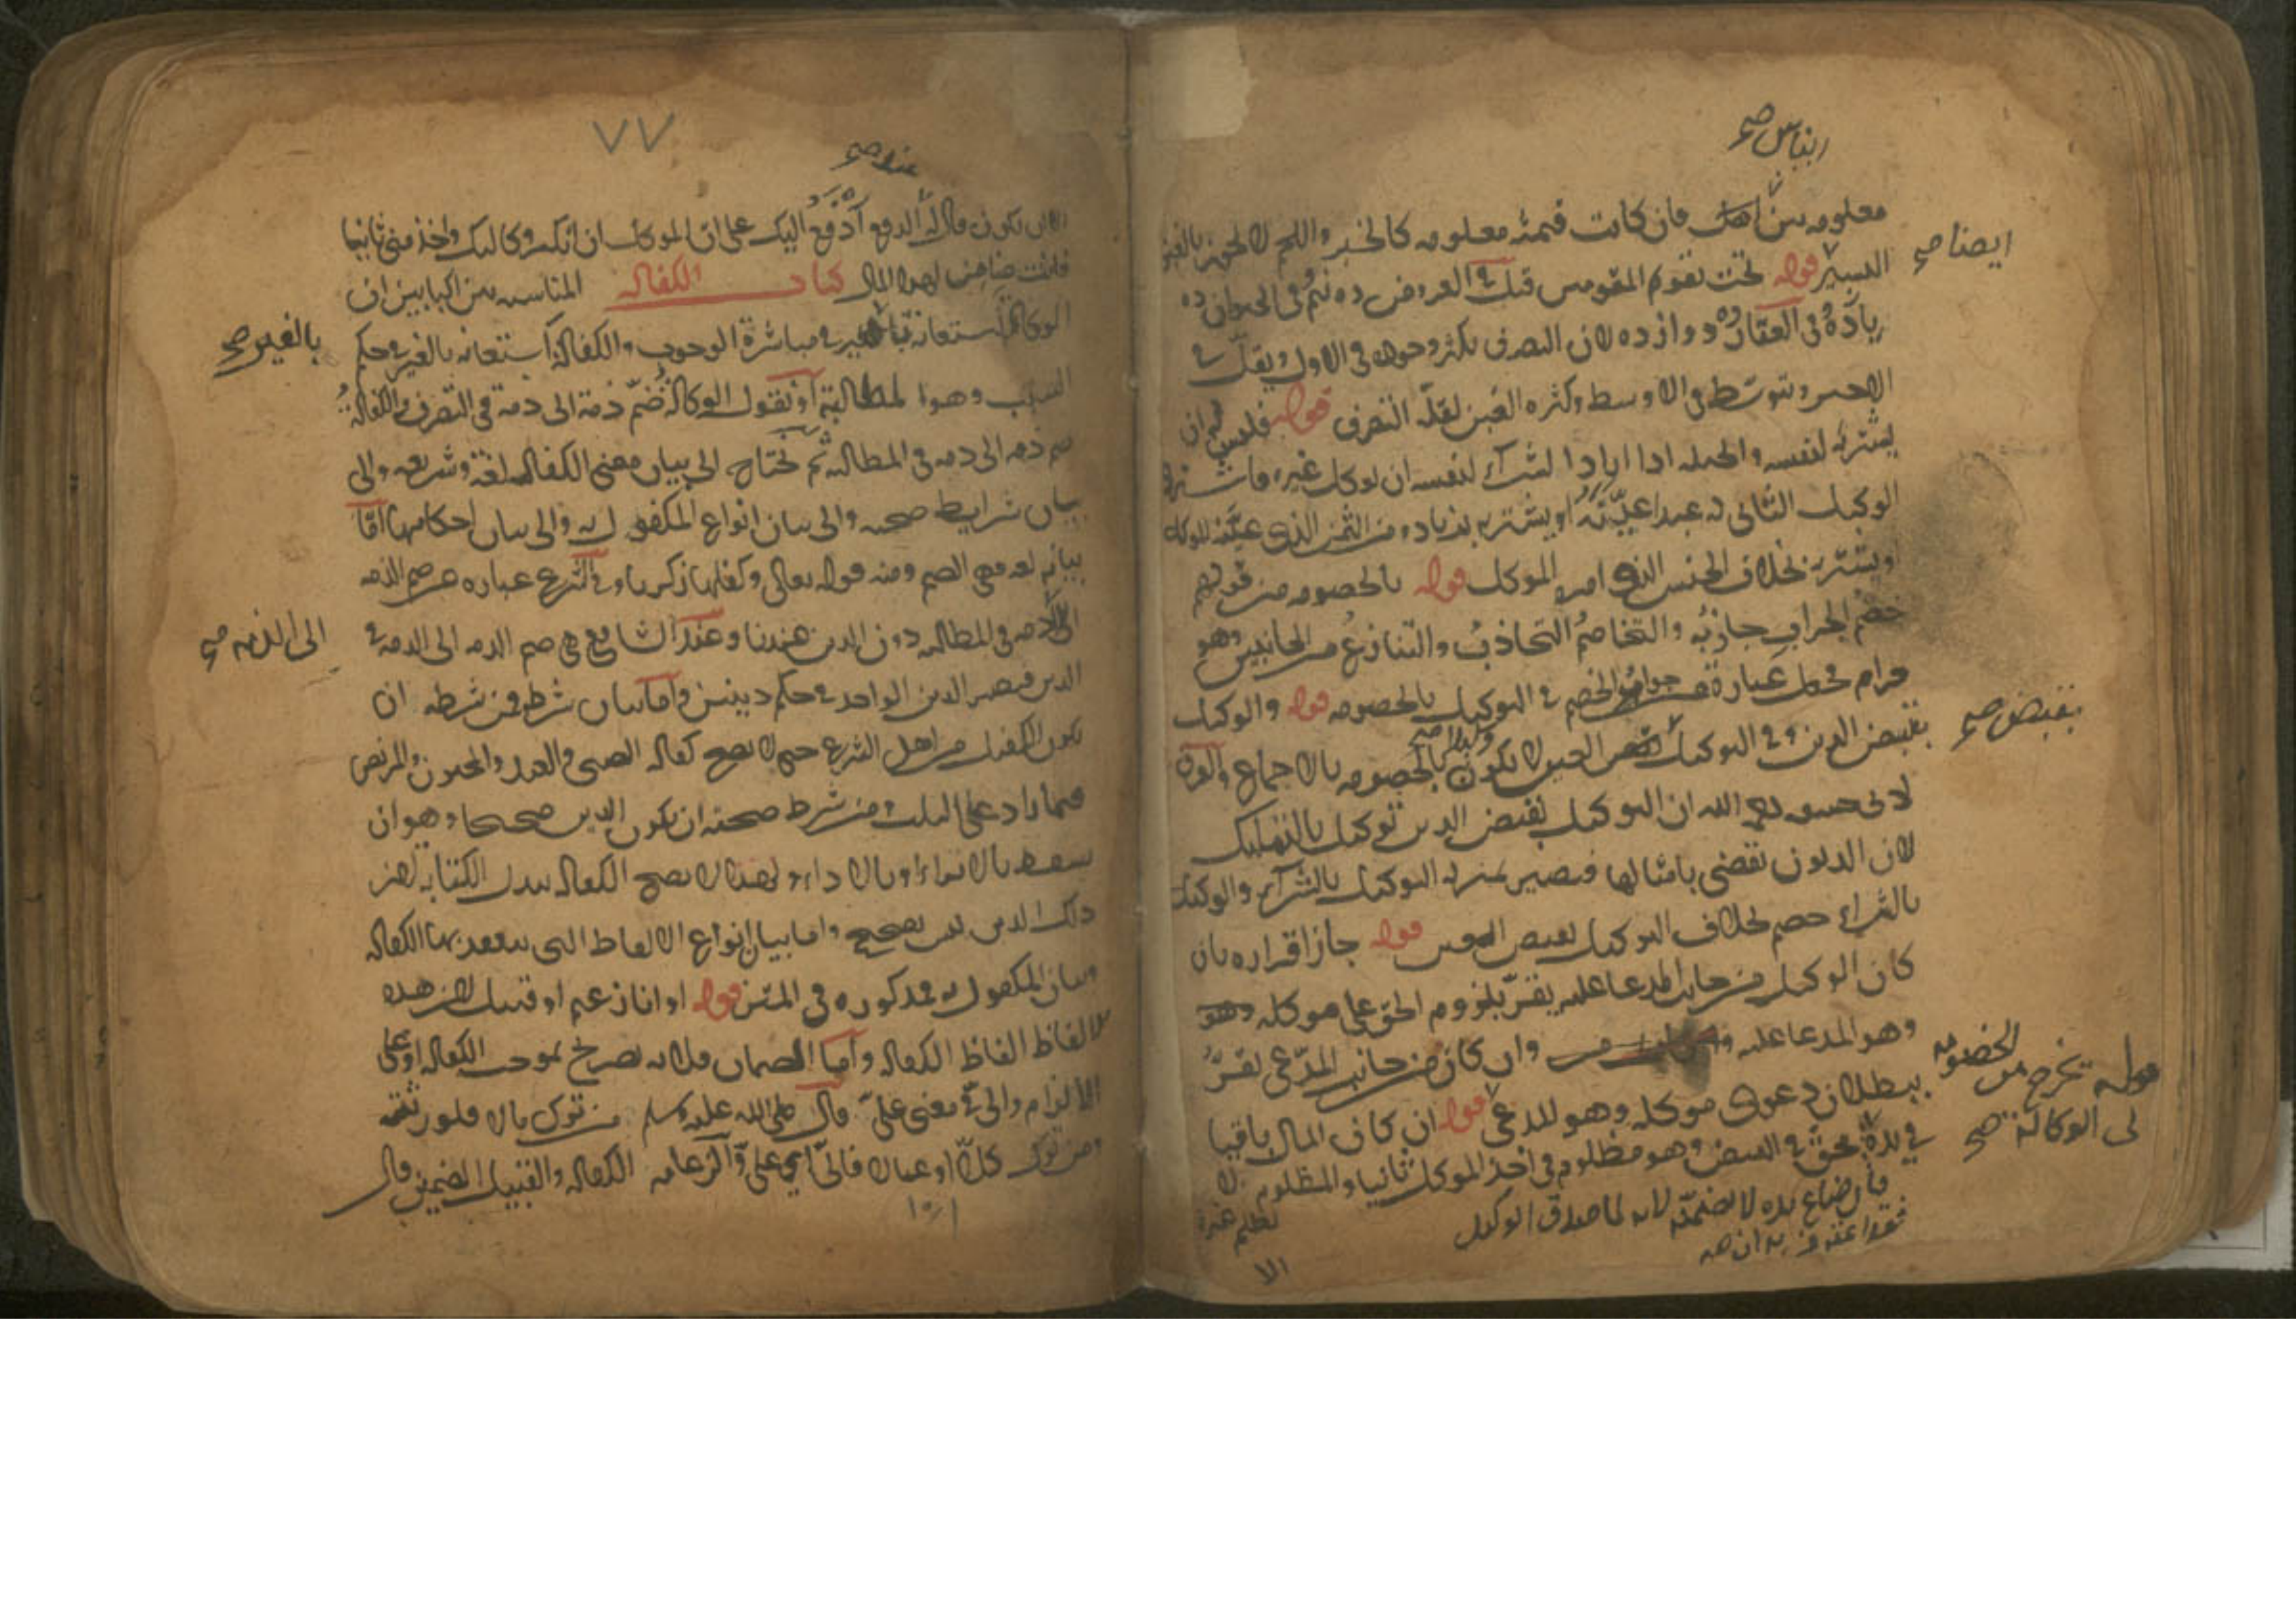 الناس صح
معلومه بين الناس فان كانت قيمته معلومه كالخبز واللحم لا يجوز بالغبن
ايضا صح
اليسير قوله تحت تقويم المقومين قيل في العروض ده نيم وفي الحيوان ده
يازده وفي العقار ده دوازده لان التصرف يكثر وجوده في الاول ويقل في
الاخير ويتوسط في الاوسط وكثره الغبن لقله التصرف قوله فليس له ان
يشتريه لنفسه والحيله اذا اراد الشراء لنفسه ان يوكل غيره فاشترى
الوكيل الثاني او يشتريه بزياده من الثمن الذي عينه للوكاله
ويشتريه بخلاف الجنس الذي امره الموكل قوله بالخصومه من قولهم
خصم الجراب جانبه والتخاصم التجاذب والتنازع من الجانبين وهو
حرام فجعل عبارة عن جواب الخصم في التوكيل بالخصومه قوله والوكيل
بقبض الدين وفي التوكيل بقبض العين لا يكون وكيلا بالخصومه بالاجماع
بقبض صح
لابي حنيفه رحمه الله ان التوكيل بقبض الدين توكيل بالتمليك
لان الديون تقضى بامثالها فيصير بمنزله التوكيل بالشراء والوكيل
بالشراء خصم بخلاف التوكيل بقبض العين قوله جاز اقراره بان
كان الوكيل من جانب المدعا عليه يقر بلزوم الحق على موكله وهو
وهو المدعا عليه وان كان من جانب المدعي يقر
ببطلان دعوى موكله وهو المدعي قوله ان كان المال باقيا
قوله يخرج من الخصومه
في الوكالة صح
في يده محق في القبض وهو مظلوم في اخذ الموكل ثانيا والمظلوم لا
يظلم غيره
فان ضاع في يده لا يضمنه لانه لما صدق الوكيل
فقد اعترف بانه
الا
٧٧
عند صح
الا ان يكون قال له الدفع ادفع اليك على ان الموكل ان انكر وكالتك واخذ مني ثانيا
فانت ضامن لهذا المال كتاب الكفاله المناسبه بين الكتابين ان
الوكاله استعانة بالغير في مباشرة الوجوب والكفاله استعانه بالغير في حكم
بالغير صح
السبب وهو المطالبة او نقول الوكالة ضم ذمة الى ذمة في التصرف والكفالة
ضم ذمه الى ذمه في المطالبه ثم نحتاج الى بيان معنى الكفاله لغة وشريعه والى
بيان شرايط صحته والى بيان انواع المكفول به والى بيان احكامها اما
بيانه لغه فهي الضم ومنه قوله تعالى وكفلها زكريا وفي الشرع عباره عن ضم الذمه
الى الذمه في المطالبه دون الدين عندنا وعند الشافعي هي ضم الذمه الى الذمه في
الى الذمه صح
الدين فيصير الدين الواحد في حكم دينين واما بيان شرطه فمن شرطه ان
يكون الكفيل من اهل التبرع حتى لا تصح كفاله الصبي والعبد والمجنون والمريض
فيما زاد على الثلث ومن شرط صحته ان يكون الدين صحيحا وهو ان
يسقط بالابراء او بالاداء ولهذا لا تصح الكفاله ببدل الكتابه لان
ذلك الدين ليس بصحيح واما بيان انواع الالفاظ التي ينعقد بها الكفاله
وبيان المكفول به فمذكوره في المتن قوله او انا زعيم او قبيل لان هذه
الالفاظ الفاظ الكفاله واما الضمان فلانه تصريح بموجب الكفاله او علي
الالتزام والي معنى علي قال صلى الله عليه وسلم من ترك مالا فلورثته
ومن ترك كلا او عيالا فالي اي علي والزعامه الكفاله والقبيل الضمين قال